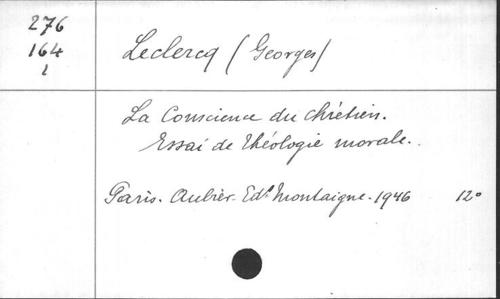 276
164
1
Leclercq (Georges)
La Conscience du chrétien.
Essai de théologie morale.
Paris. Aubier. Edᵗ Montaigne. 1946 12°